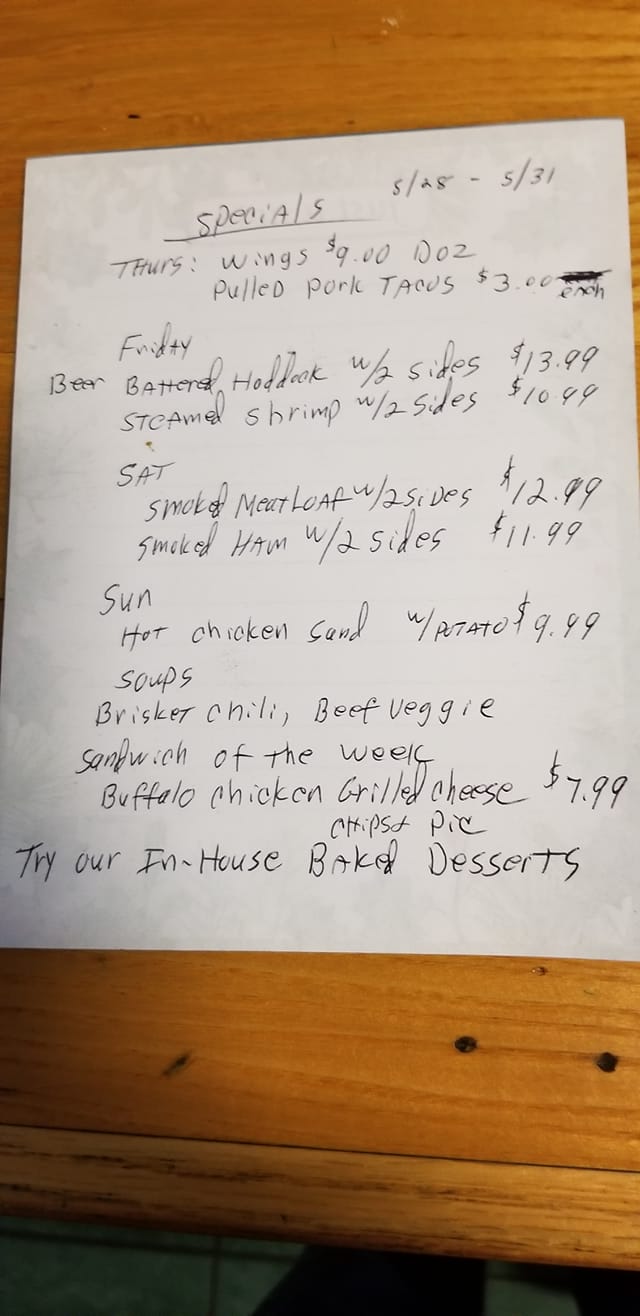 5/28 - 5/31
Specials
Thurs: Wings $9.00 Doz
Pulled Pork Tacos $3.00 each
Friday
Beer Battered Haddock w/2 sides $13.99
Steamed Shrimp w/2 Sides $10.99
SAT
Smoked Meatloaf w/2 Sides $12.99
Smoked Ham w/2 sides $11.99
Sun
Hot chicken Sand w/Potato $9.99
Soups
Brisket Chili, Beef Veggie
Sandwich of the week
Buffalo Chicken Grilled Cheese $7.99
Chips & Pic
Try our In-House Baked Desserts